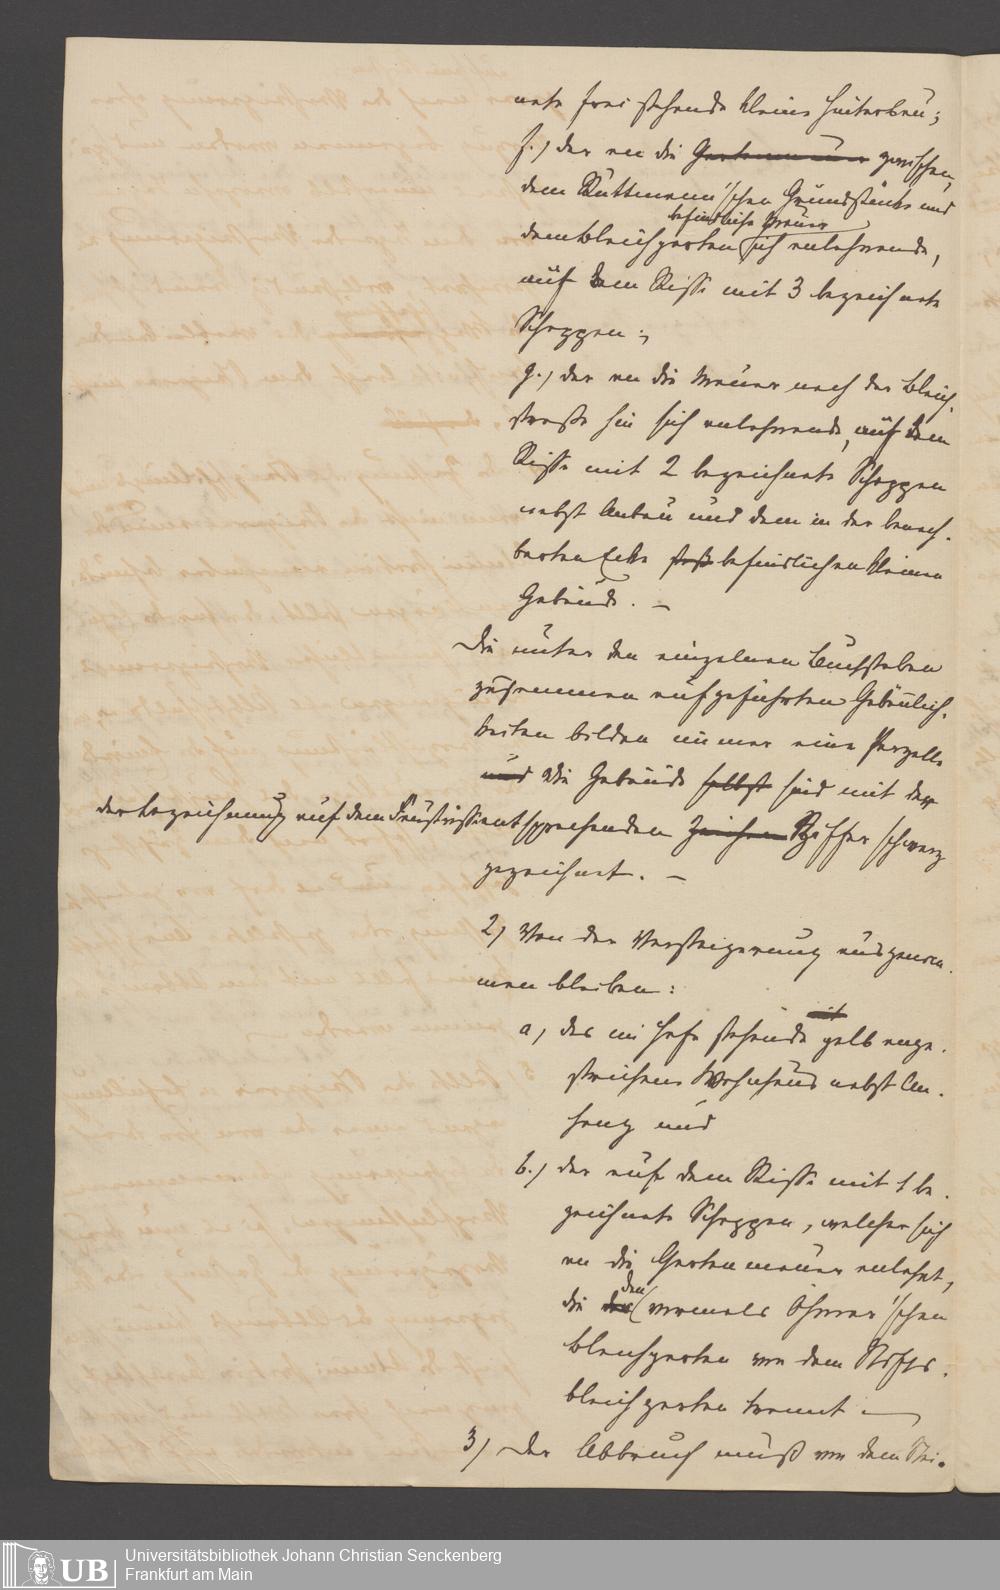 nete frei stehende kleine Hinterbau;
f.) der an die Gartenmauer zwischen
dem Küttmann'schen Grundstücke und
befindliche Mauer
dem Bleichgarten sich anlehnende,
auf dem Risse mit 3 bezeichnete
Schoppen;
g.) der an die Mauer nach der Bleich-
straße hin sich anlehnende, auf dem
Risse mit 2 bezeichnete Schoppen
nebst Anbau und dem in der benach-
barten Ecke befindlichen kleinen
Gebäude. –
Die unter den einzelnen Buchstaben
zusammen aufgeführten Gebäulich-
keiten bilden immer eine Parzelle
und Die Gebäude selbst sind mit der
der Bezeichnung auf dem Fluchtrisse entsprechenden Zeichen Ziffer schwarz
gezeichnet. –
2) Von der Versteigerung ausgenom-
men bleiben:
mit
a) das im Hofe stehende gelb ange-
strichene Wohnhaus nebst An-
hang und
b.) der auf dem Risse mit 1 be-
zeichnete Schoppen, welcher sich
an die Gartenmauer anlehnt,
den
die vormals Ohmer'schen
Bleichgarten von dem Stifts-
bleichgarten trennt. –
3) Der Abbruch muß von dem Stei-
UB
Universitätsbibliothek Johann Christian Senckenberg
Frankfurt am Main